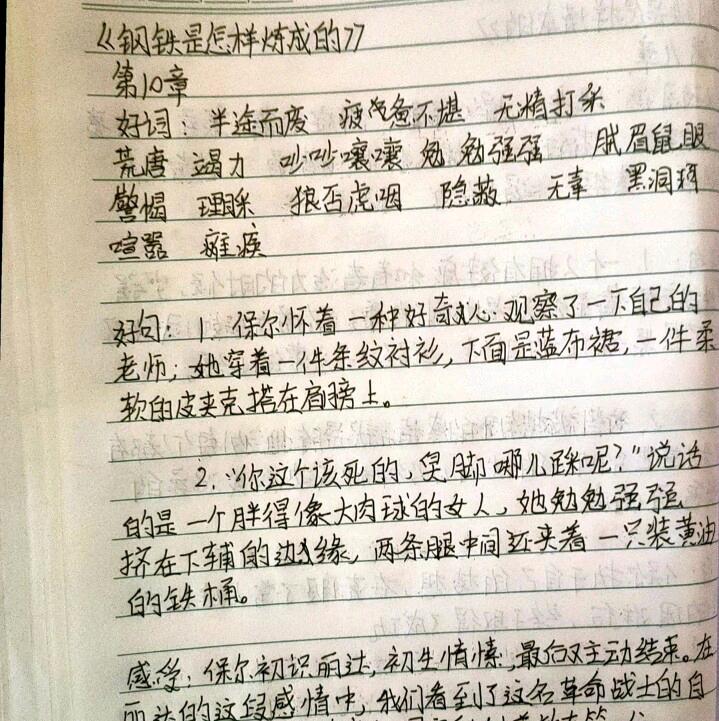 《钢铁是怎样炼成的》
第10章
好词：半途而废 疲惫不堪 无精打采
荒唐 竭力 吵吵嚷嚷 勉勉强强 贼眉鼠眼
警惕 理睬 狼吞虎咽 隐蔽 无辜 黑洞
喧嚣 瘫痪
好句：1. 保尔怀着一种好奇心观察了一下自己的
老师；她穿着一件条纹衬衫，下面是蓝布裙，一件柔
软的皮夹克搭在肩膀上。
2.“你这个该死的，臭脚哪儿踩呢？”说话
的是一个胖得像大肉球的女人，她勉勉强强
挤在下铺的边缘，两条腿中间还夹着一只装黄油
的铁桶。
感受：保尔初识丽达，初生情愫，最后又主动结束。在
丽达的这段感情中，我们看到了这名革命战士的自